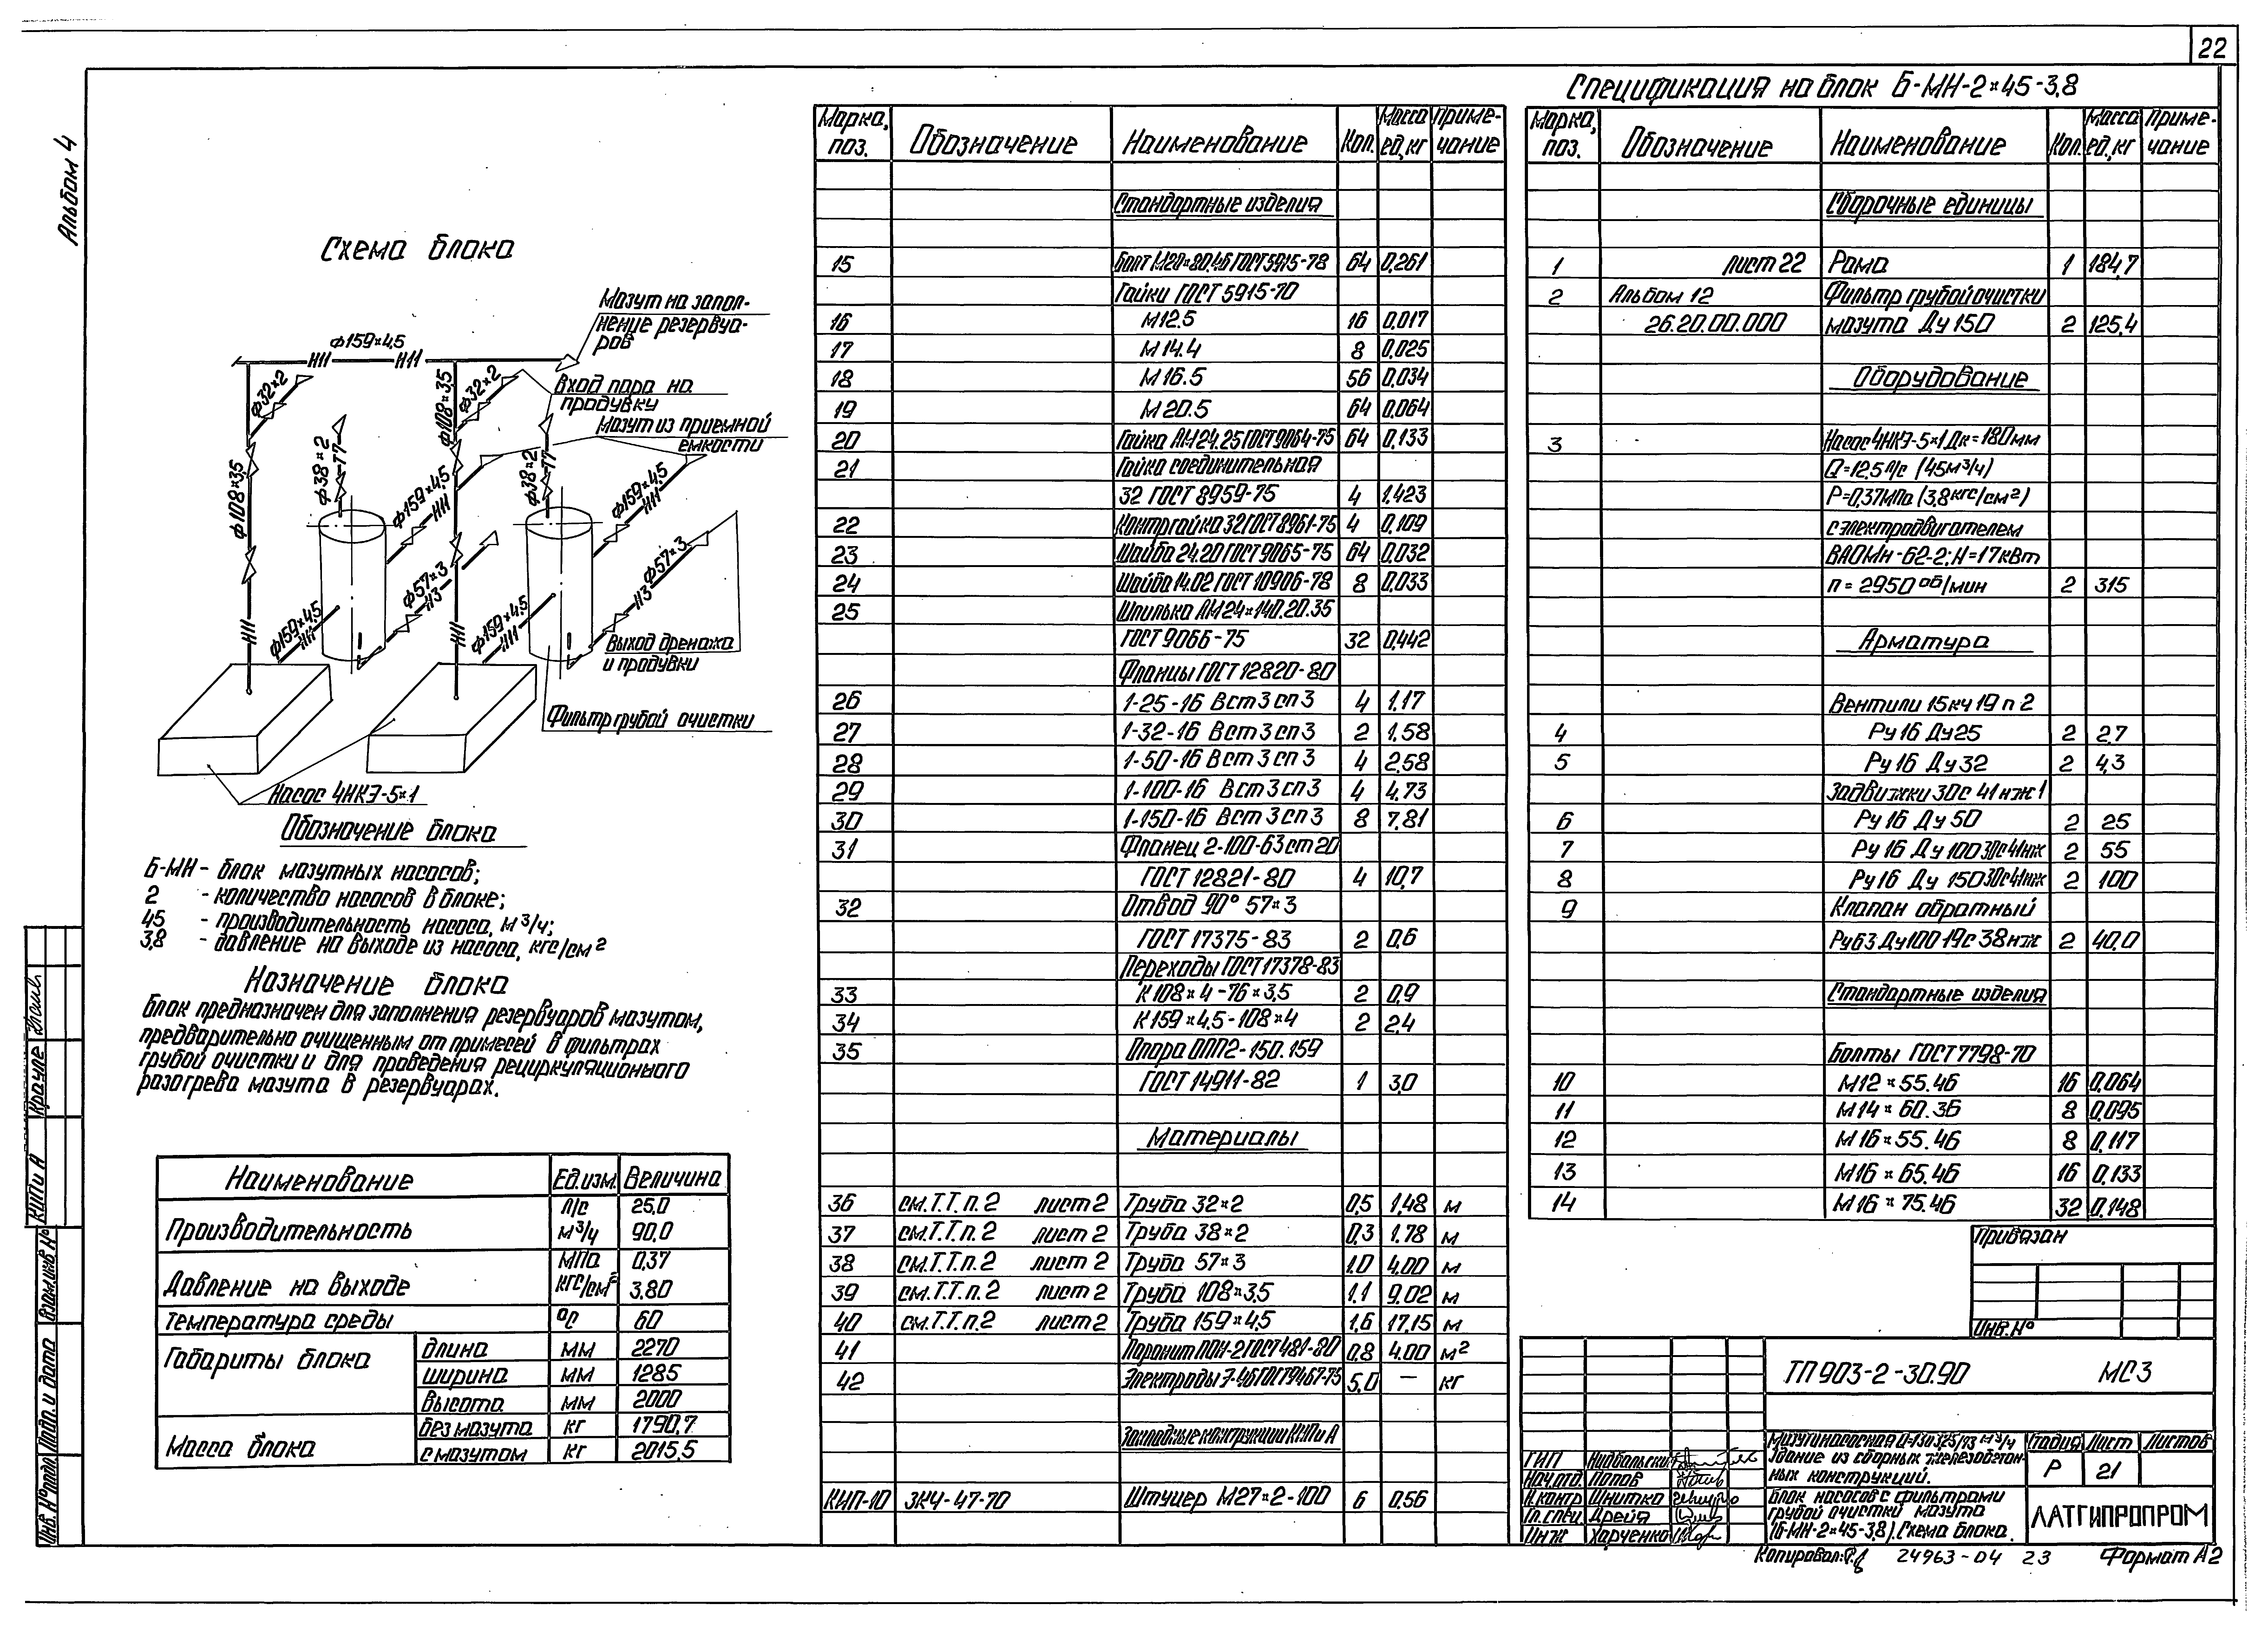 22
Альбом 4
Схема блока
Мазут на запол-
нение резервуа-
ров
Вход пара на
продувку
Мазут из приемной
емкости
Выход дренажа
и продувки
Фильтр грубой очистки
Насос 4НКЭ-5×1
ф159×4,5
ф32×2
ф108×3,5
ф32×2
ф38×2
ф38×2
ф108×3,5
ф159×4,5
ф159×4,5
ф57×3
ф57×3
ф159×4,5
ф159×4,5
Обозначение блока
Б-МН - блок мазутных насосов;
2 - количество насосов в блоке;
45 - производительность насоса, м³/ч;
3,8 - давление на выходе из насоса, кгс/см²
Назначение блока
Блок предназначен для заполнения резервуаров мазутом,
предварительно очищенным от примесей в фильтрах
грубой очистки и для проведения рециркуляционного
разогрева мазута в резервуарах.
Наименование Ед.изм. Величина
Производительность л/с 25,0
м³/ч 90,0
Давление на выходе МПа 0,37
кгс/см² 3,80
Температура среды °С 60
Габариты блока длина мм 2270
ширина мм 1285
высота мм 2000
Масса блока без мазута кг 1790,7
с мазутом кг 2015,5
Марка, поз. Обозначение Наименование Кол. Масса ед,кг Приме-чание
Стандартные изделия
15 Болт М20×80.46 ГОСТ 5915-78 64 0,261
Гайки ГОСТ 5915-70
16 М12.5 16 0,017
17 М14.4 8 0,025
18 М16.5 56 0,034
19 М20.5 64 0,064
20 Гайка АМ24.25 ГОСТ 9064-75 64 0,133
21 Гайка соединительная
32 ГОСТ 8959-75 4 1,423
22 Контргайка 32 ГОСТ 8961-75 4 0,109
23 Шайба 24.20 ГОСТ 9065-75 64 0,032
24 Шайба 14.02 ГОСТ 10906-78 8 0,033
25 Шпилька АМ24×140.20.35
ГОСТ 9066-75 32 0,442
Фланцы ГОСТ 12820-80
26 1-25-16 Вст3сп3 4 1,17
27 1-32-16 Вст3сп3 2 1,58
28 1-50-16 Вст3сп3 4 2,58
29 1-100-16 Вст3сп3 4 4,73
30 1-150-16 Вст3сп3 8 7,81
31 Фланец 2-100-63 ст20
ГОСТ 12821-80 4 10,7
32 Отвод 90° 57×3
ГОСТ 17375-83 2 0,6
Переходы ГОСТ 17378-83
33 К108×4-76×3,5 2 0,9
34 К159×4,5-108×4 2 2,4
35 Опора ОПП2-150.159
ГОСТ 14911-82 1 3,0
Материалы
36 см.Т.Т.п.2 лист 2 Труба 32×2 0,5 1,48 м
37 см.Т.Т.п.2 лист 2 Труба 38×2 0,3 1.78 м
38 см.Т.Т.п.2 лист 2 Труба 57×3 1,0 4,00 м
39 см.Т.Т.п.2 лист 2 Труба 108×3,5 1,1 9,02 м
40 см.Т.Т.п.2 лист 2 Труба 159×4,5 1,6 17,15 м
41 Паронит ПОН-2 ГОСТ 481-80 0,8 4,00 м²
42 Электроды Э-46 ГОСТ 9467-75 5,0 — кг
Закладные конструкции КИПиА
КИП-10 ЗКЧ-47-70 Штуцер М27×2-100 6 0,56
Спецификация на блок Б-МН-2×45-3,8
Марка, поз. Обозначение Наименование Кол. Масса ед,кг Приме-чание
Сборочные единицы
1 лист 22 Рама 1 184,7
2 Альбом 12 Фильтр грубой очистки
26.20.00.000 мазута Ду 150 2 125,4
Оборудование
3 Насос 4НКЭ-5×1 Дк=180мм
Q=12,5 л/с (45м³/ч)
Р=0,37МПа (3,8кгс/см²)
с электродвигателем
ВАОМн-62-2; Н=17кВт
n=2950 об/мин 2 315
Арматура
Вентили 15кч 19 п 2
4 Ру16 Ду25 2 2,7
5 Ру16 Ду32 2 4,3
Задвижки 30с 41 нж 1
6 Ру16 Ду50 2 25
7 Ру16 Ду 100 30с41нж 2 55
8 Ру16 Ду 150 30с41нж 2 100
9 Клапан обратный
Ру63 Ду100 19с 38нж 2 40,0
Стандартные изделия
Болты ГОСТ 7798-70
10 М12×55.46 16 0,064
11 М14×60.36 8 0,095
12 М16×55.46 8 0,117
13 М16×65.46 16 0,133
14 М16×75.46 32 0,148
Привязан
Инв.№
ТП 903-2-30.90 МС3
Здание из сборных железобетон-
ных конструкций.
Стадия Лист Листов
Р 21
Блок насосов с фильтрами
грубой очистки мазута
(Б-МН-2×45-3,8). Схема блока.
ЛАТГИПРОПРОМ
ГИП
Нач.отд. Попов
Н.контр Шнитко
Гл.спец Дрейя
Инж Харченко
КИПиА Крауле
Взам.инв.№
Подп. и дата
Инв.№ подл.
Копировал:
24963-04 23
Формат А2